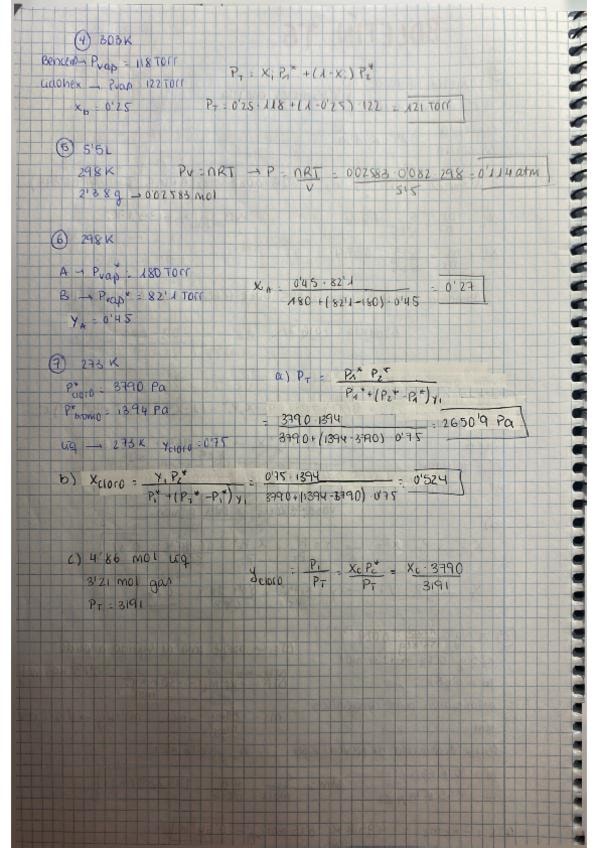 ④ 303K
Benceno → Pvap = 118 Torr
ciclohex → Pvap 122 Torr
x_b = 0'25
P_T = x_1 P_1* + (1 - x_1) P_2*
P_T = 0'25 · 118 + (1 - 0'25) · 122 = 121 Torr
⑤ 5'5 L
298K
2'38g → 0'02583 mol
PV = nRT → P = nRT / V = 0'02583 · 0'082 · 298 / 5'5 = 0'114 atm
⑥ 298K
A → Pvap* = 180 Torr
B → Pvap* = 82'1 Torr
Y_A = 0'45
x_A = 0'45 · 82'1 / 180 + (82'1 - 180) · 0'45 = 0'27
⑦ 273 K
P*cloro = 3790 Pa
P*bromo = 1394 Pa
liq → 273K y cloro = 0'75
a) P_T = P_1* P_2* / P_1* + (P_2* - P_1*) y_1
= 3790 · 1394 / 3790 + (1394 - 3790) 0'75 = 2650'9 Pa
b) x cloro = y_1 P_2* / P_1* + (P_2* - P_1*) y_1 = 0'75 · 1394 / 3790 + (1394 - 3790) 0'75 = 0'524
c) 4'86 mol liq
3'21 mol gas
P_T = 3191
y cloro = P_1 / P_T = x_c P_c* / P_T = x_c · 3790 / 3191